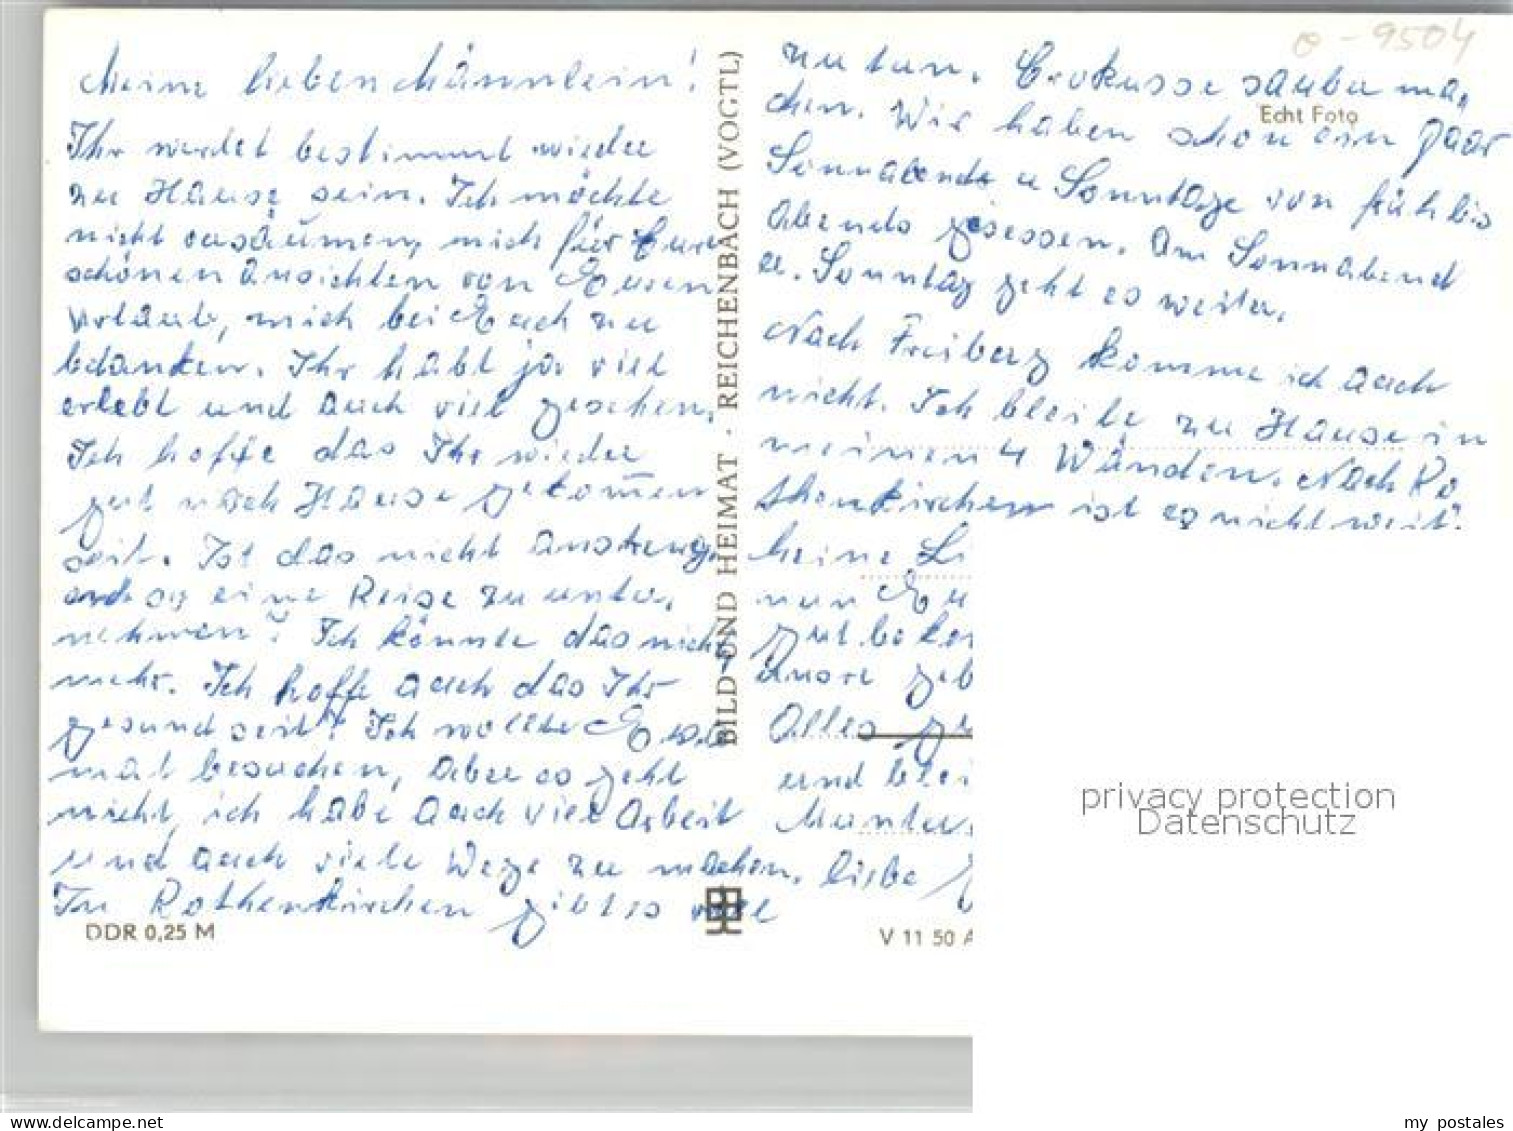 Meine lieben Männlein!
Ihr werdet bestimmt wieder
zu Hause sein. Ich möchte
nicht versäumen, mich für Eure
schönen Ansichten von Euren
Urlaub, mich bei Euch zu
bedanken. Ihr habt ja viel
erlebt und auch viel gesehen.
Ich hoffe das Ihr wieder
gut nach Hause gekom̄en
seit. Ist das nicht anstreng
end so eine Reise zu unter,
nehmen? Ich könnte das nicht
mehr. Ich hoffe auch das Ihr
gesund seit? Ich wollte Euch
mal besuchen, aber es geht
nicht, ich habe auch viel Arbeit
und auch viele Wege zu machen.
In Rothenkirchen gibt es viel
zu tun. Crokusse sauber ma,
chen. Wir haben schon ein paar
Sonnabende u Sonntage von früh bis
Abends gesessen. Am Sonnabend
u. Sonntag geht es weiter.
Nach Freiberg komme ich auch
nicht. Ich bleibe zu Hause in
meinen 4 Wänden. Nach Ro
thenkirchen ist es nicht weit.
Meine Li
nun Eu
gut be
unsre geb
Alles gu
und blei
Munter.
liebe
BILD UND HEIMAT · REICHENBACH (VOGTL)
Echt Foto
o - 9504
DDR 0,25 M
V 11 50 A
privacy protection
Datenschutz
www.delcampe.net
my_postales